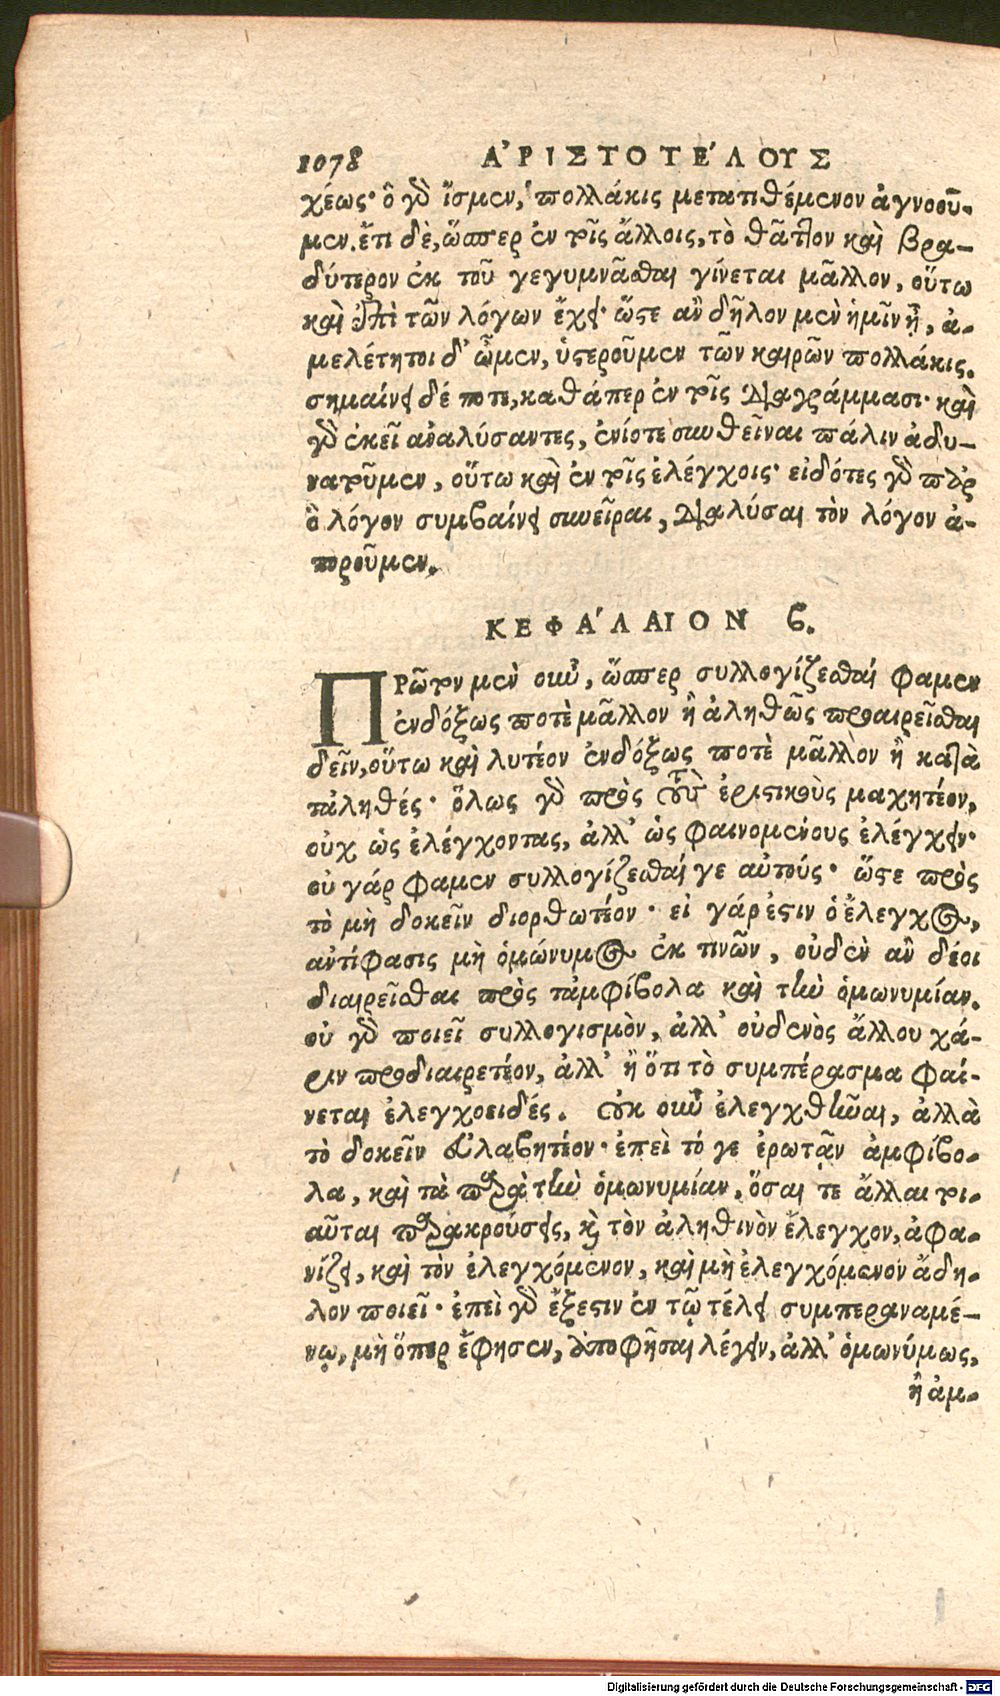 1078 ἈΡΙΣΤΟΤΈΛΟΥΣ
χέως· ὃ γὸ ἴσμεν, πολλάκις μετατιθέμενον ἀγνοοῦ-
μεν. ἔτι δὲ, ὥσπερ ἐν τοῖς ἄλλοις, τὸ θᾶττον καὶ βρα-
δύτερον ἐκ τοῦ γεγυμνᾶσθαι γίνεται μᾶλλον, οὕτω
καὶ ἐπὶ τῶν λόγων ἔχει· ὥστε ἂν δῆλον μὲν ἡμῖν ᾖ, ἀ-
μελέτητοι δ' ὦμεν, ὑστεροῦμεν τῶν καιρῶν πολλάκις.
σημαίνει δέ ποτε, καθάπερ ἐν τοῖς διαγράμμασι· καὶ
γὸ ἐκεῖ ἀναλύσαντες, ἐνίοτε συνθεῖναι πάλιν ἀδυ-
νατοῦμεν, οὕτω καὶ ἐν τοῖς ἐλέγχοις· εἰδότες γὸ παρ'
ὃ λόγον συμβαίνει συνεῖραι, διαλύσαι τὸν λόγον ἀ-
ποροῦμεν.
ΚΕΦΆΛΑΙΟΝ β.
ΠΡῶτον μὲν οὖν, ὥσπερ συλλογίζεσθαί φαμεν
ἐνδόξως ποτὲ μᾶλλον ἢ ἀληθῶς προαιρεῖσθαι
δεῖν, οὕτω καὶ λυτέον ἐνδόξως ποτὲ μᾶλλον ἢ κατὰ
τἀληθές· ὅλως γὸ πρὸς τοὺς ἐριστικοὺς μαχητέον,
οὐχ ὡς ἐλέγχοντας, ἀλλ' ὡς φαινομένους ἐλέγχειν·
οὐ γάρ φαμεν συλλογίζεσθαί γε αὐτούς· ὥστε πρὸς
τὸ μὴ δοκεῖν διορθωτέον· εἰ γάρ ἐστιν ὁ ἔλεγχος,
ἀντίφασις μὴ ὁμώνυμος ἐκ τινῶν, οὐδὲν ἂν δέοι
διαιρεῖσθαι πρὸς τἀμφίβολα καὶ τὴν ὁμωνυμίαν.
οὐ γὸ ποιεῖ συλλογισμὸν, ἀλλ' οὐδενὸς ἄλλου χά-
ριν προδιαιρετέον, ἀλλ' ἢ ὅτι τὸ συμπέρασμα φαί-
νεται ἐλεγχοειδές. οὐκ οὖν ἐλεγχθῆναι, ἀλλὰ
τὸ δοκεῖν εὐλαβητέον· ἐπεὶ τό γε ἐρωτᾷν ἀμφίβο-
λα, καὶ τὰ παρὰ τὴν ὁμωνυμίαν, ὅσαι τε ἄλλαι τοι-
αῦται παρακρούσεις, κỳ τὸν ἀληθινὸν ἔλεγχον, ἀφα-
νίζει, καὶ τὸν ἐλεγχόμενον, καὶ μὴ ἐλεγχόμενον ἄδη-
λον ποιεῖ· ἐπεὶ γὸ ἔξεστιν ἐν τῷ τέλει συμπεραναμέ-
νῳ, μὴ ὅπερ ἔφησεν, ἀποφῆσαι λέγειν, ἀλλ' ὁμωνύμως,
ἢ ἀμ-
Digitalisierung gefördert durch die Deutsche Forschungsgemeinschaft - DFG